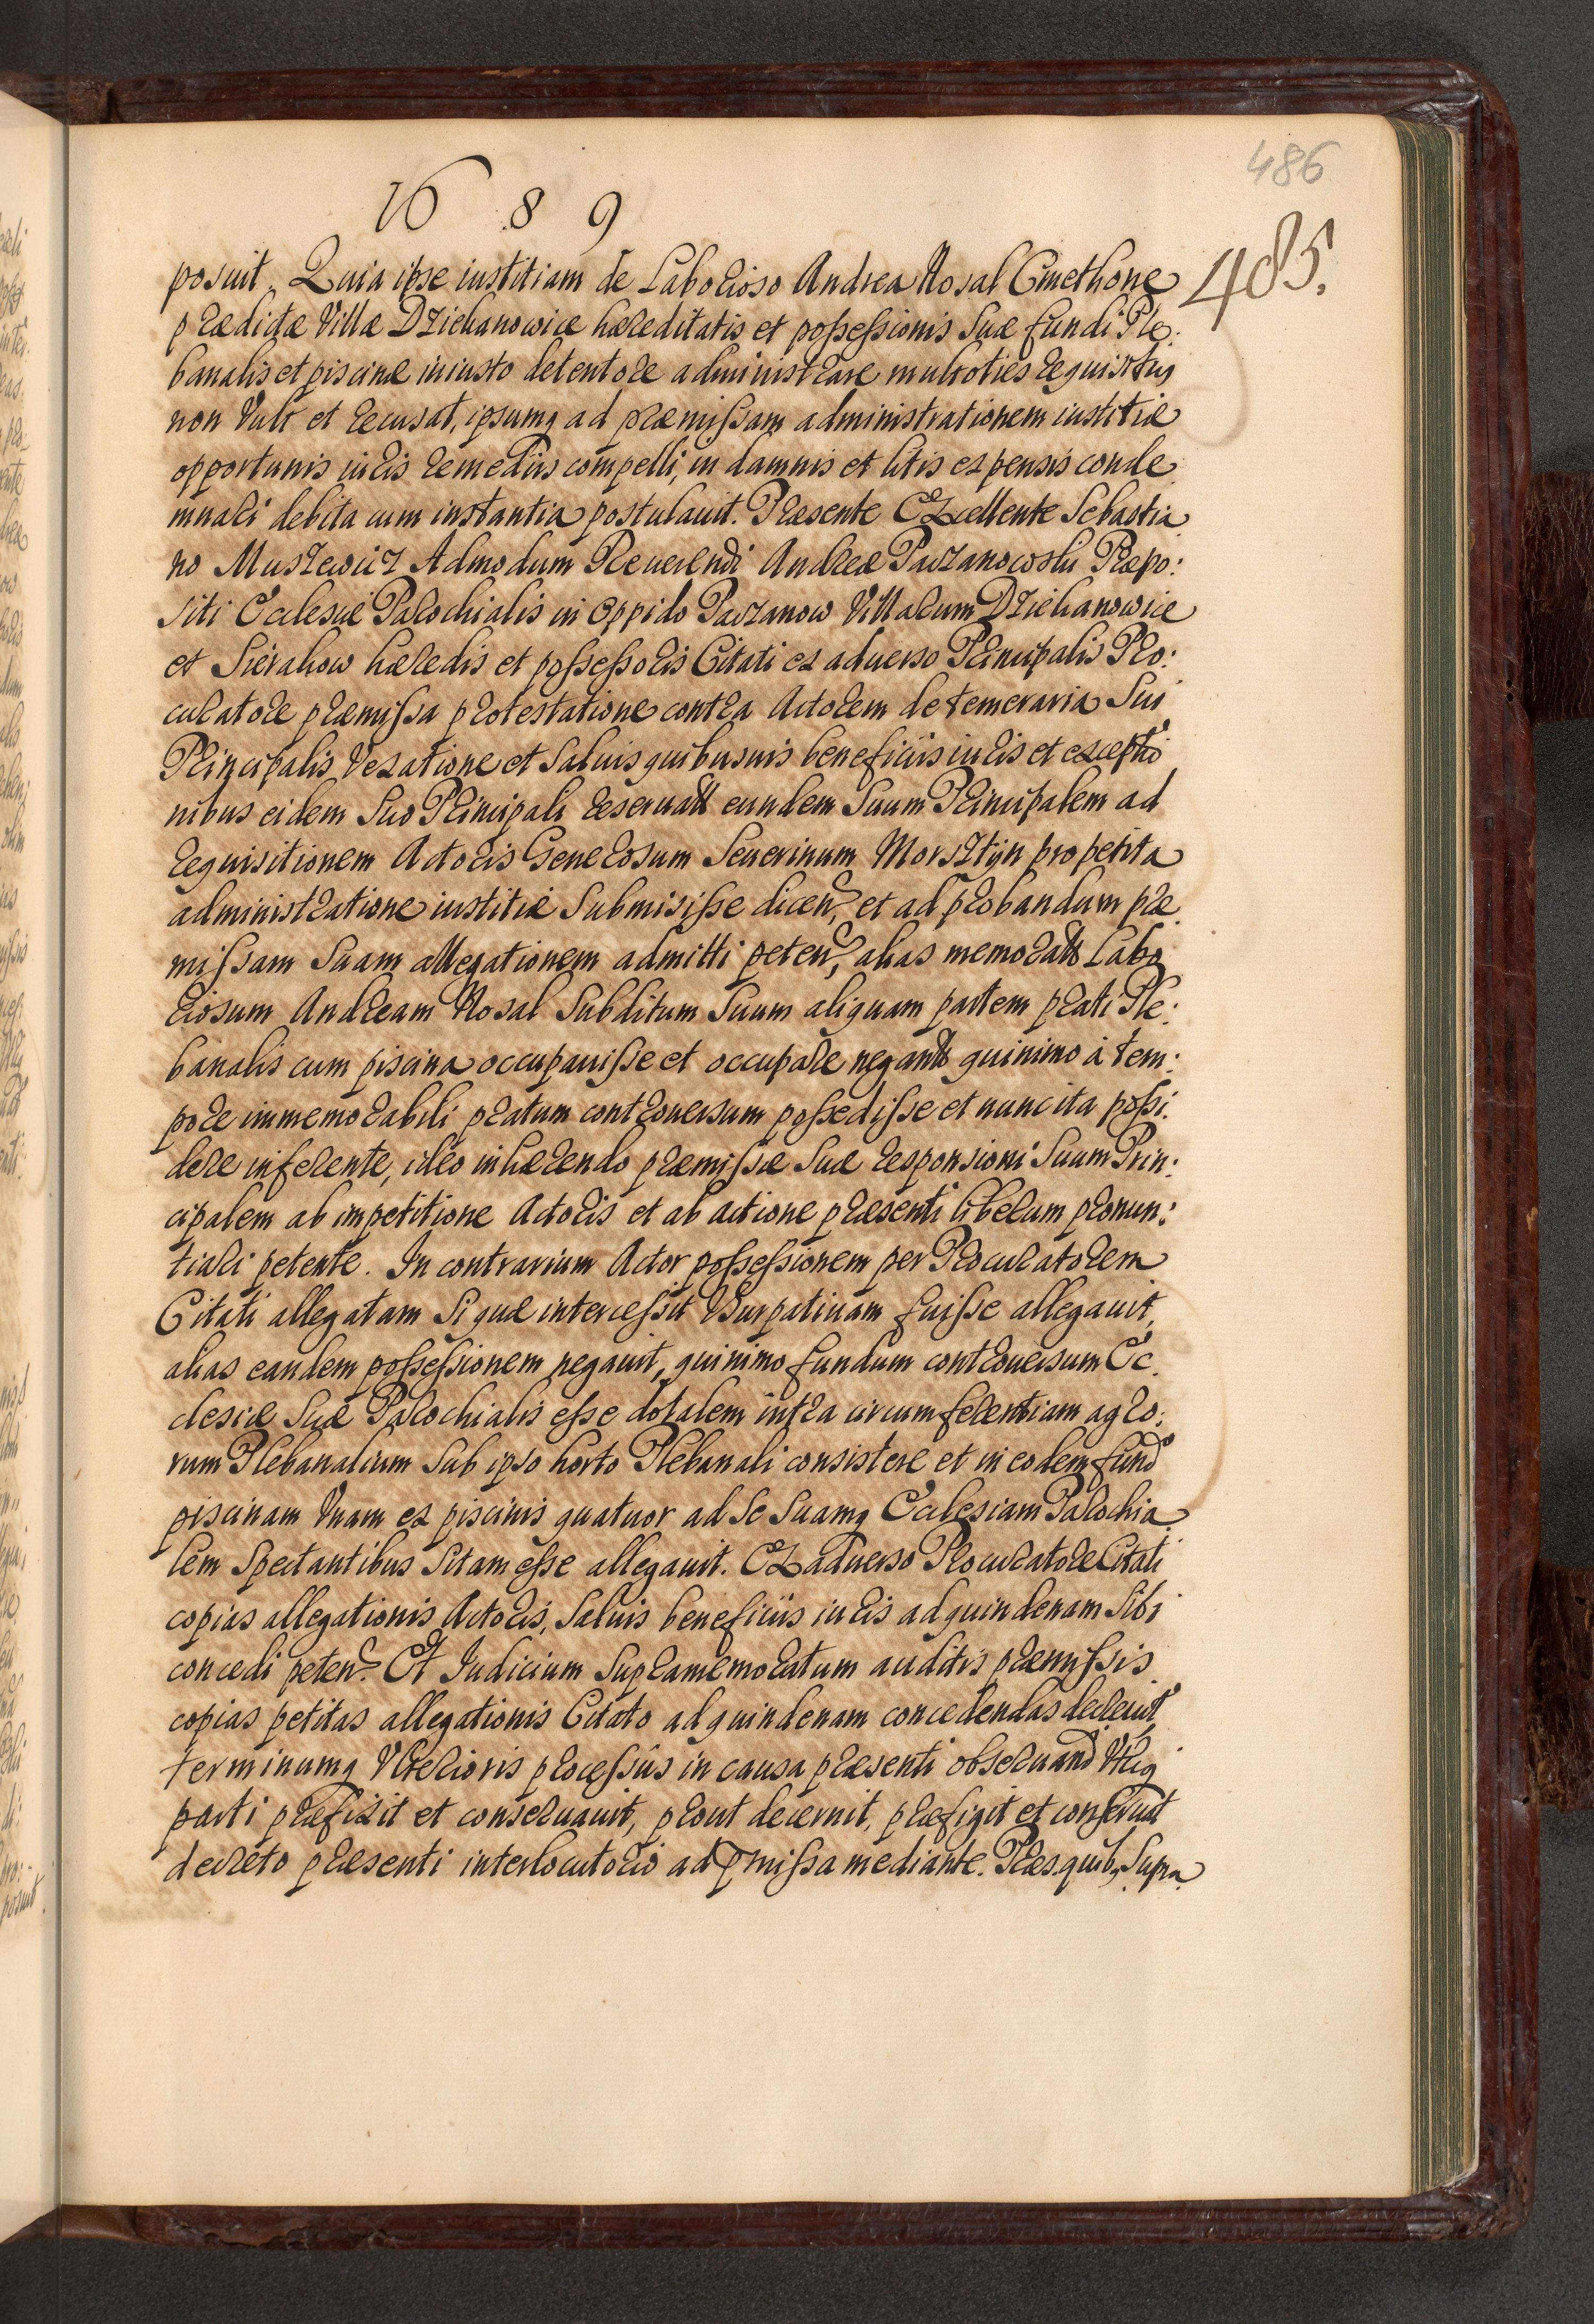 486
1689
485.
posuit. Quia ipse iustitiam de Laborioso Andrea Nosal Cmethone
prædictæ Villæ Dziekanowice hæreditatis et possessionis Suæ fundi Ple:
banalis et piscinæ iniusto detentore administrare multoties requisitus
non Vult et recusat, ipsumq ad præmissam administrationem iustitiæ
opportunis iuris remediis compelli, in damnis et litis expensis conde
mnari debita cum instantia postulauit. Præsente Excellente Sebastia
no Muszewicz Admodum Reuerendi Andreæ Paczanowski Præpo:
siti Ecclesiæ Parochialis in Oppido Paczanow Villarum Dziekanowice
et Sierakow hæredis et possessoris Citati ex aduerso Principalis Pro:
curatore præmissa protestatione contra Actorem de temeraria Sui
Principalis Vexatione et Saluis quibusuis beneficiis iuris et exceptio
nibus eidem Suo Principali reseruatt eundem Suum Principalem ad
requisitionem Actoris Generosum Seuerinum Morsztyn pro petita
administratione iustitiæ Submisisse dicen, et ad probandum præ
missam Suam allegationem admitti peten, alias memoratt Labo
riosum Andream Nosal Subditum Suum aliquam partem prati Ple:
banalis cum piscina occupauisse et occupare negantt quinimo à tem:
pore immemorabili pratum controuersum possedisse et nunc ita possi:
dere inferente, ideo inhærendo præmissæ Suæ responsioni Suum Prin:
cipalem ab impetitione Actoris et ab actione præsenti liberum pronun:
tiari petente. In contrarium Actor possessionem per Procuratorem
Citati allegatam Si quæ intercessit Vsurpatiuam fuisse allegauit,
alias eandem possessionem negauit, quinimo fundum controuersum Ec
clesiæ Suæ Parochialis esse dotalem intra circumferentiam agro:
rum Plebanalium Sub ipso horto Plebanali consistere et in eodem fundo
piscinam Vnam ex piscinis quatuor ad Se Suamq Ecclesiam Parochia
lem Spectantibus Sitam esse allegauit. Ex aduerso Procuratore Citati
copias allegationis Actoris, Saluis beneficiis iuris ad quindenam Sibi
concedi peten. Et Iudicium Supramemoratum auditis præmissis
copias petitas allegationis Citato ad quindenam concedendas decreuit,
terminumq Vlterioris processus in causa præsenti obseruand Vtriq
parti præfixit et conseruauit, prout decernit, præfigit et conseruat
decreto præsenti interlocutorio ad pmissa mediante. Præs. quib, Supra